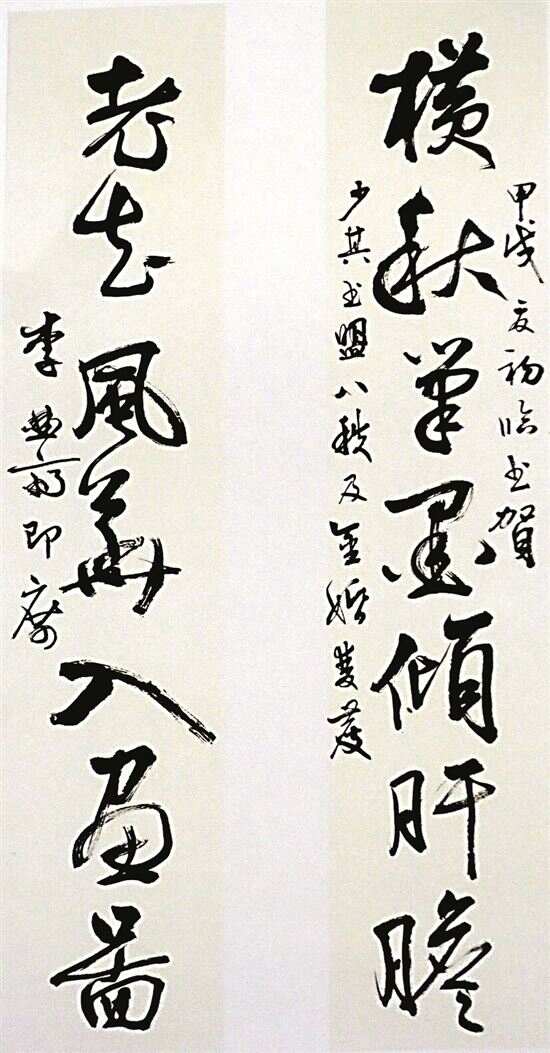 橫秋筆墨傾肝膽
甲戌夏初临书賀
少其书盟八秩及金婚雙慶
老去風華入畫圖
李曲齋即席